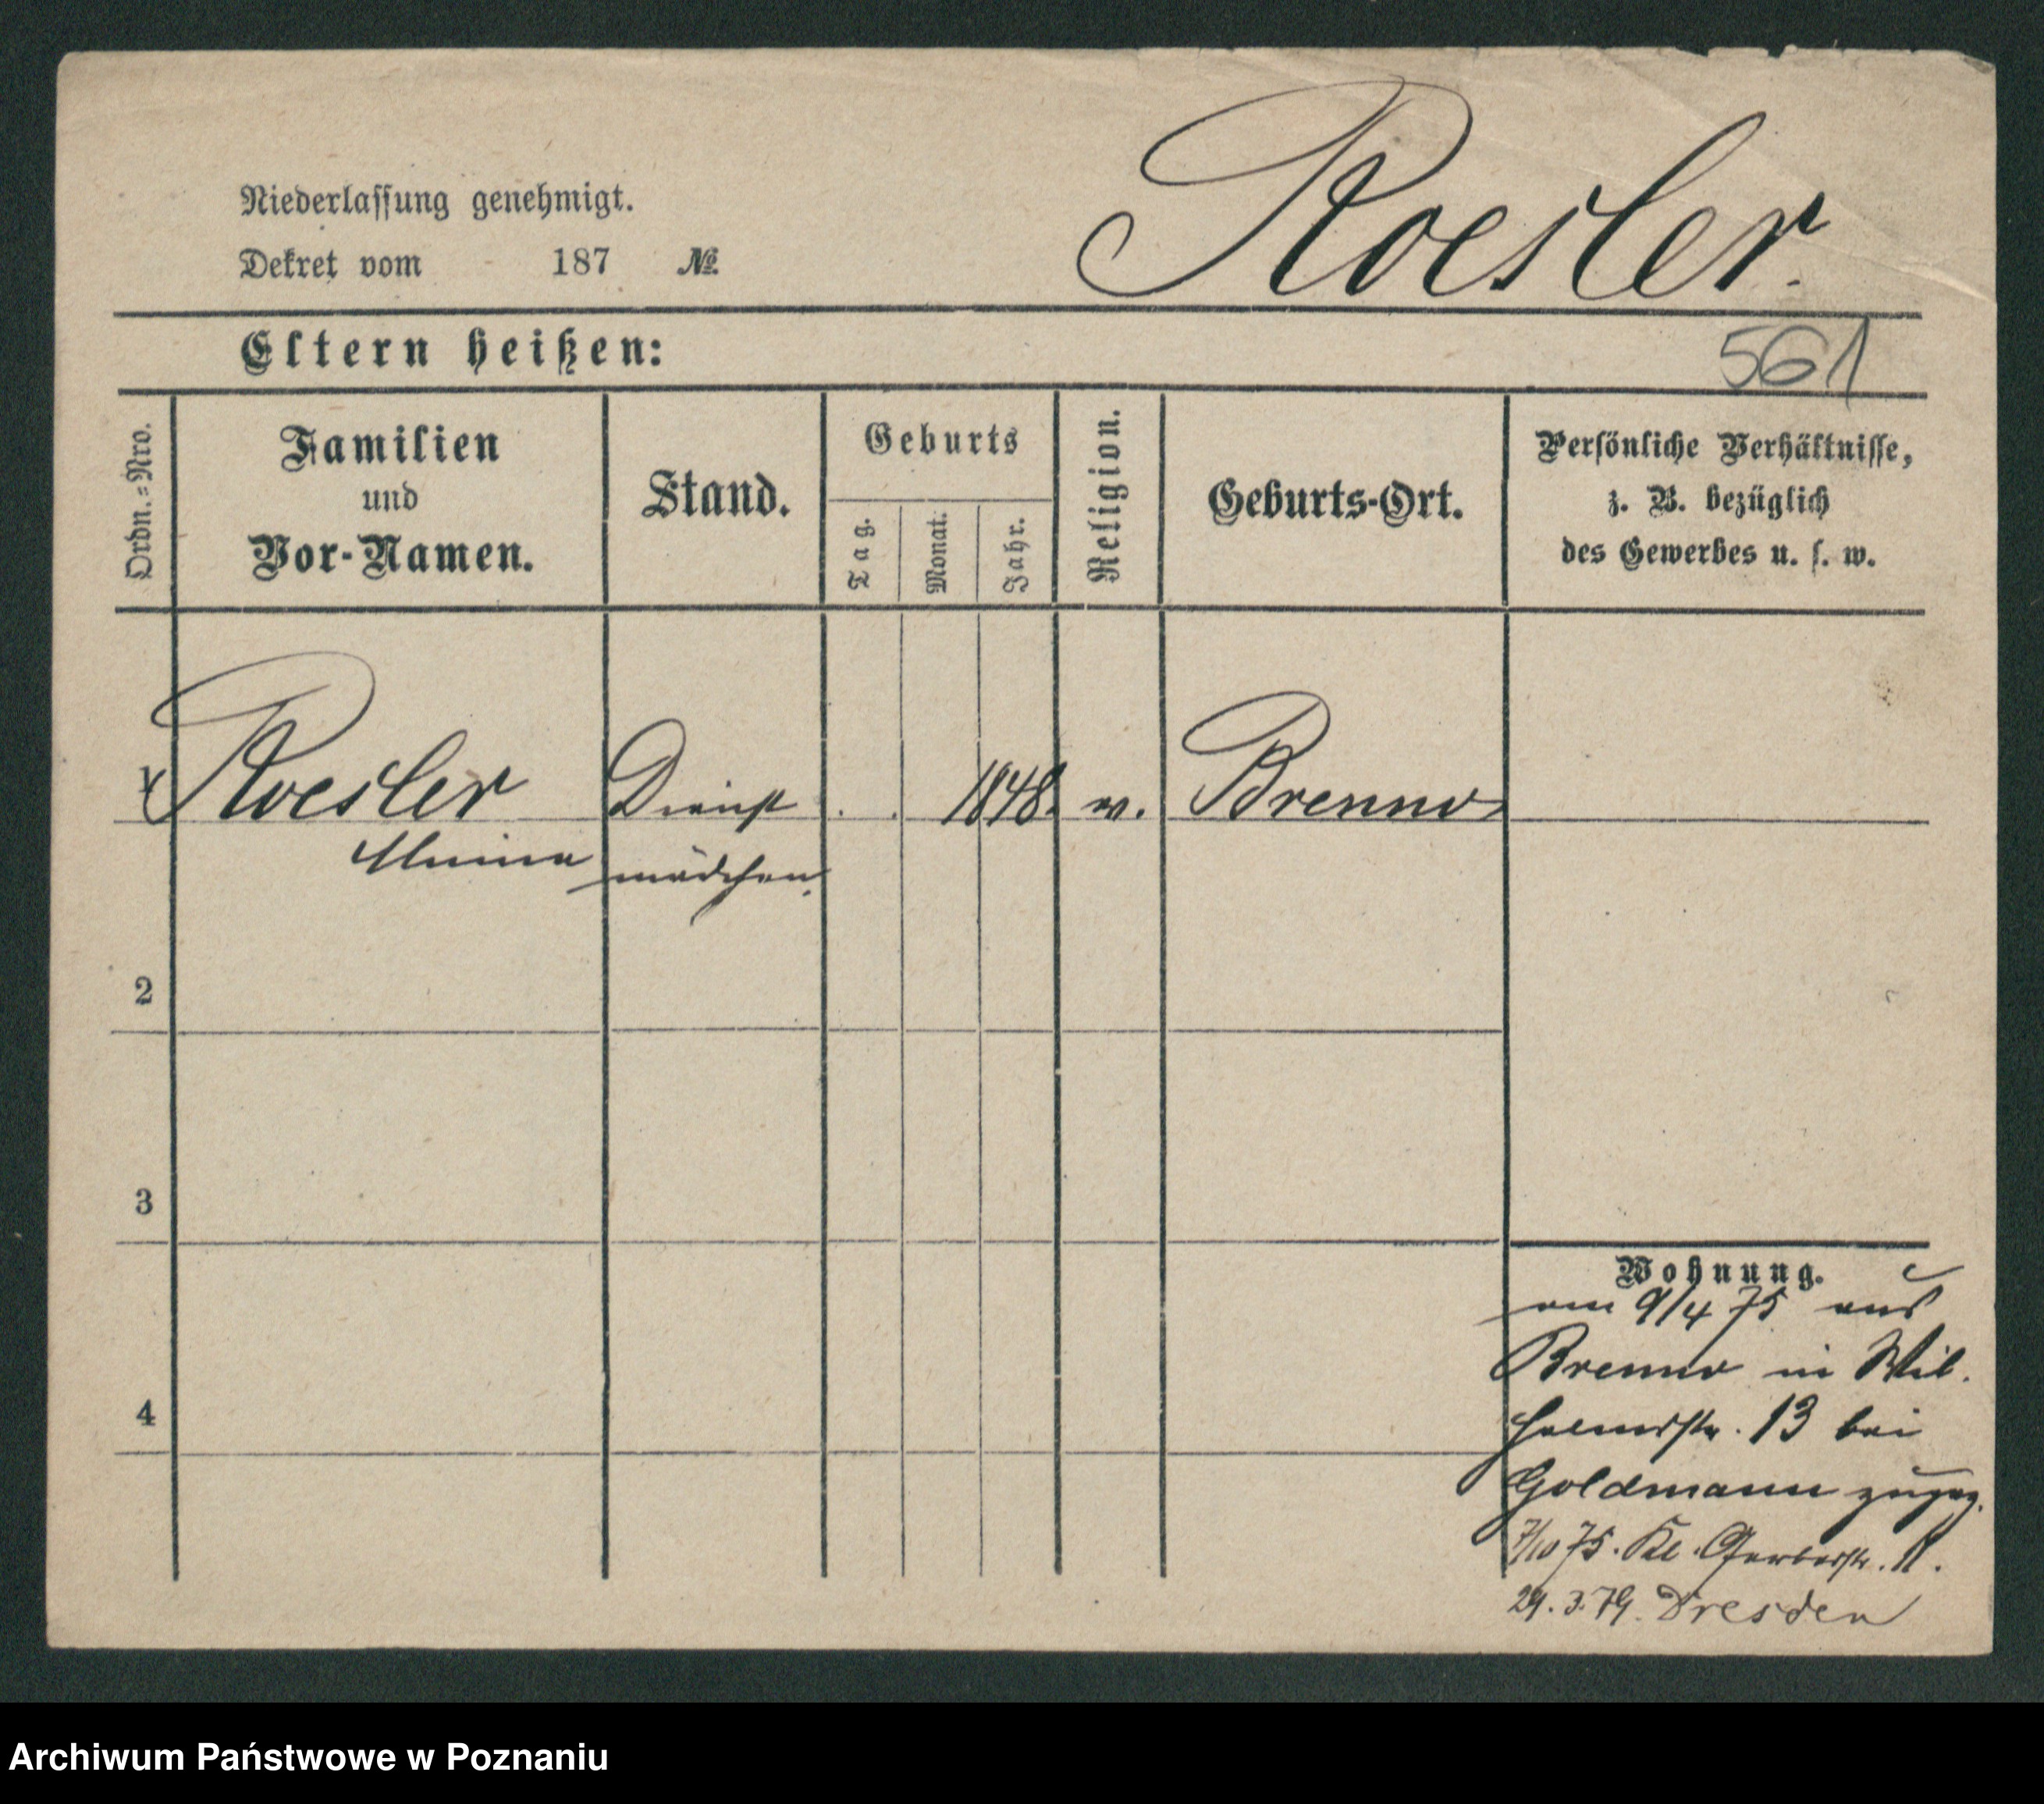 Roesler.
Niederlassung genehmigt.
Dekret vom 187 №
Eltern heißen:
561
Ordn.-Nro.
Familien
und
Vor-Namen.
Stand.
Geburts
Tag.
Monat.
Jahr.
Religion.
Geburts-Ort.
Persönliche Verhältnisse,
z. B. bezüglich
des Gewerbes u. s. w.
1 Roesler Dienst . . 1848. Brenno
mädchen.
2
3
4
Wohnung.
am 9/4 75 aus
Brenno in Wil.
helmstr. 13 bei
Goldmann zugez.
7/10 75. Kl. Gerberstr. 11.
29. 3. 79. Dresden
Archiwum Państwowe w Poznaniu